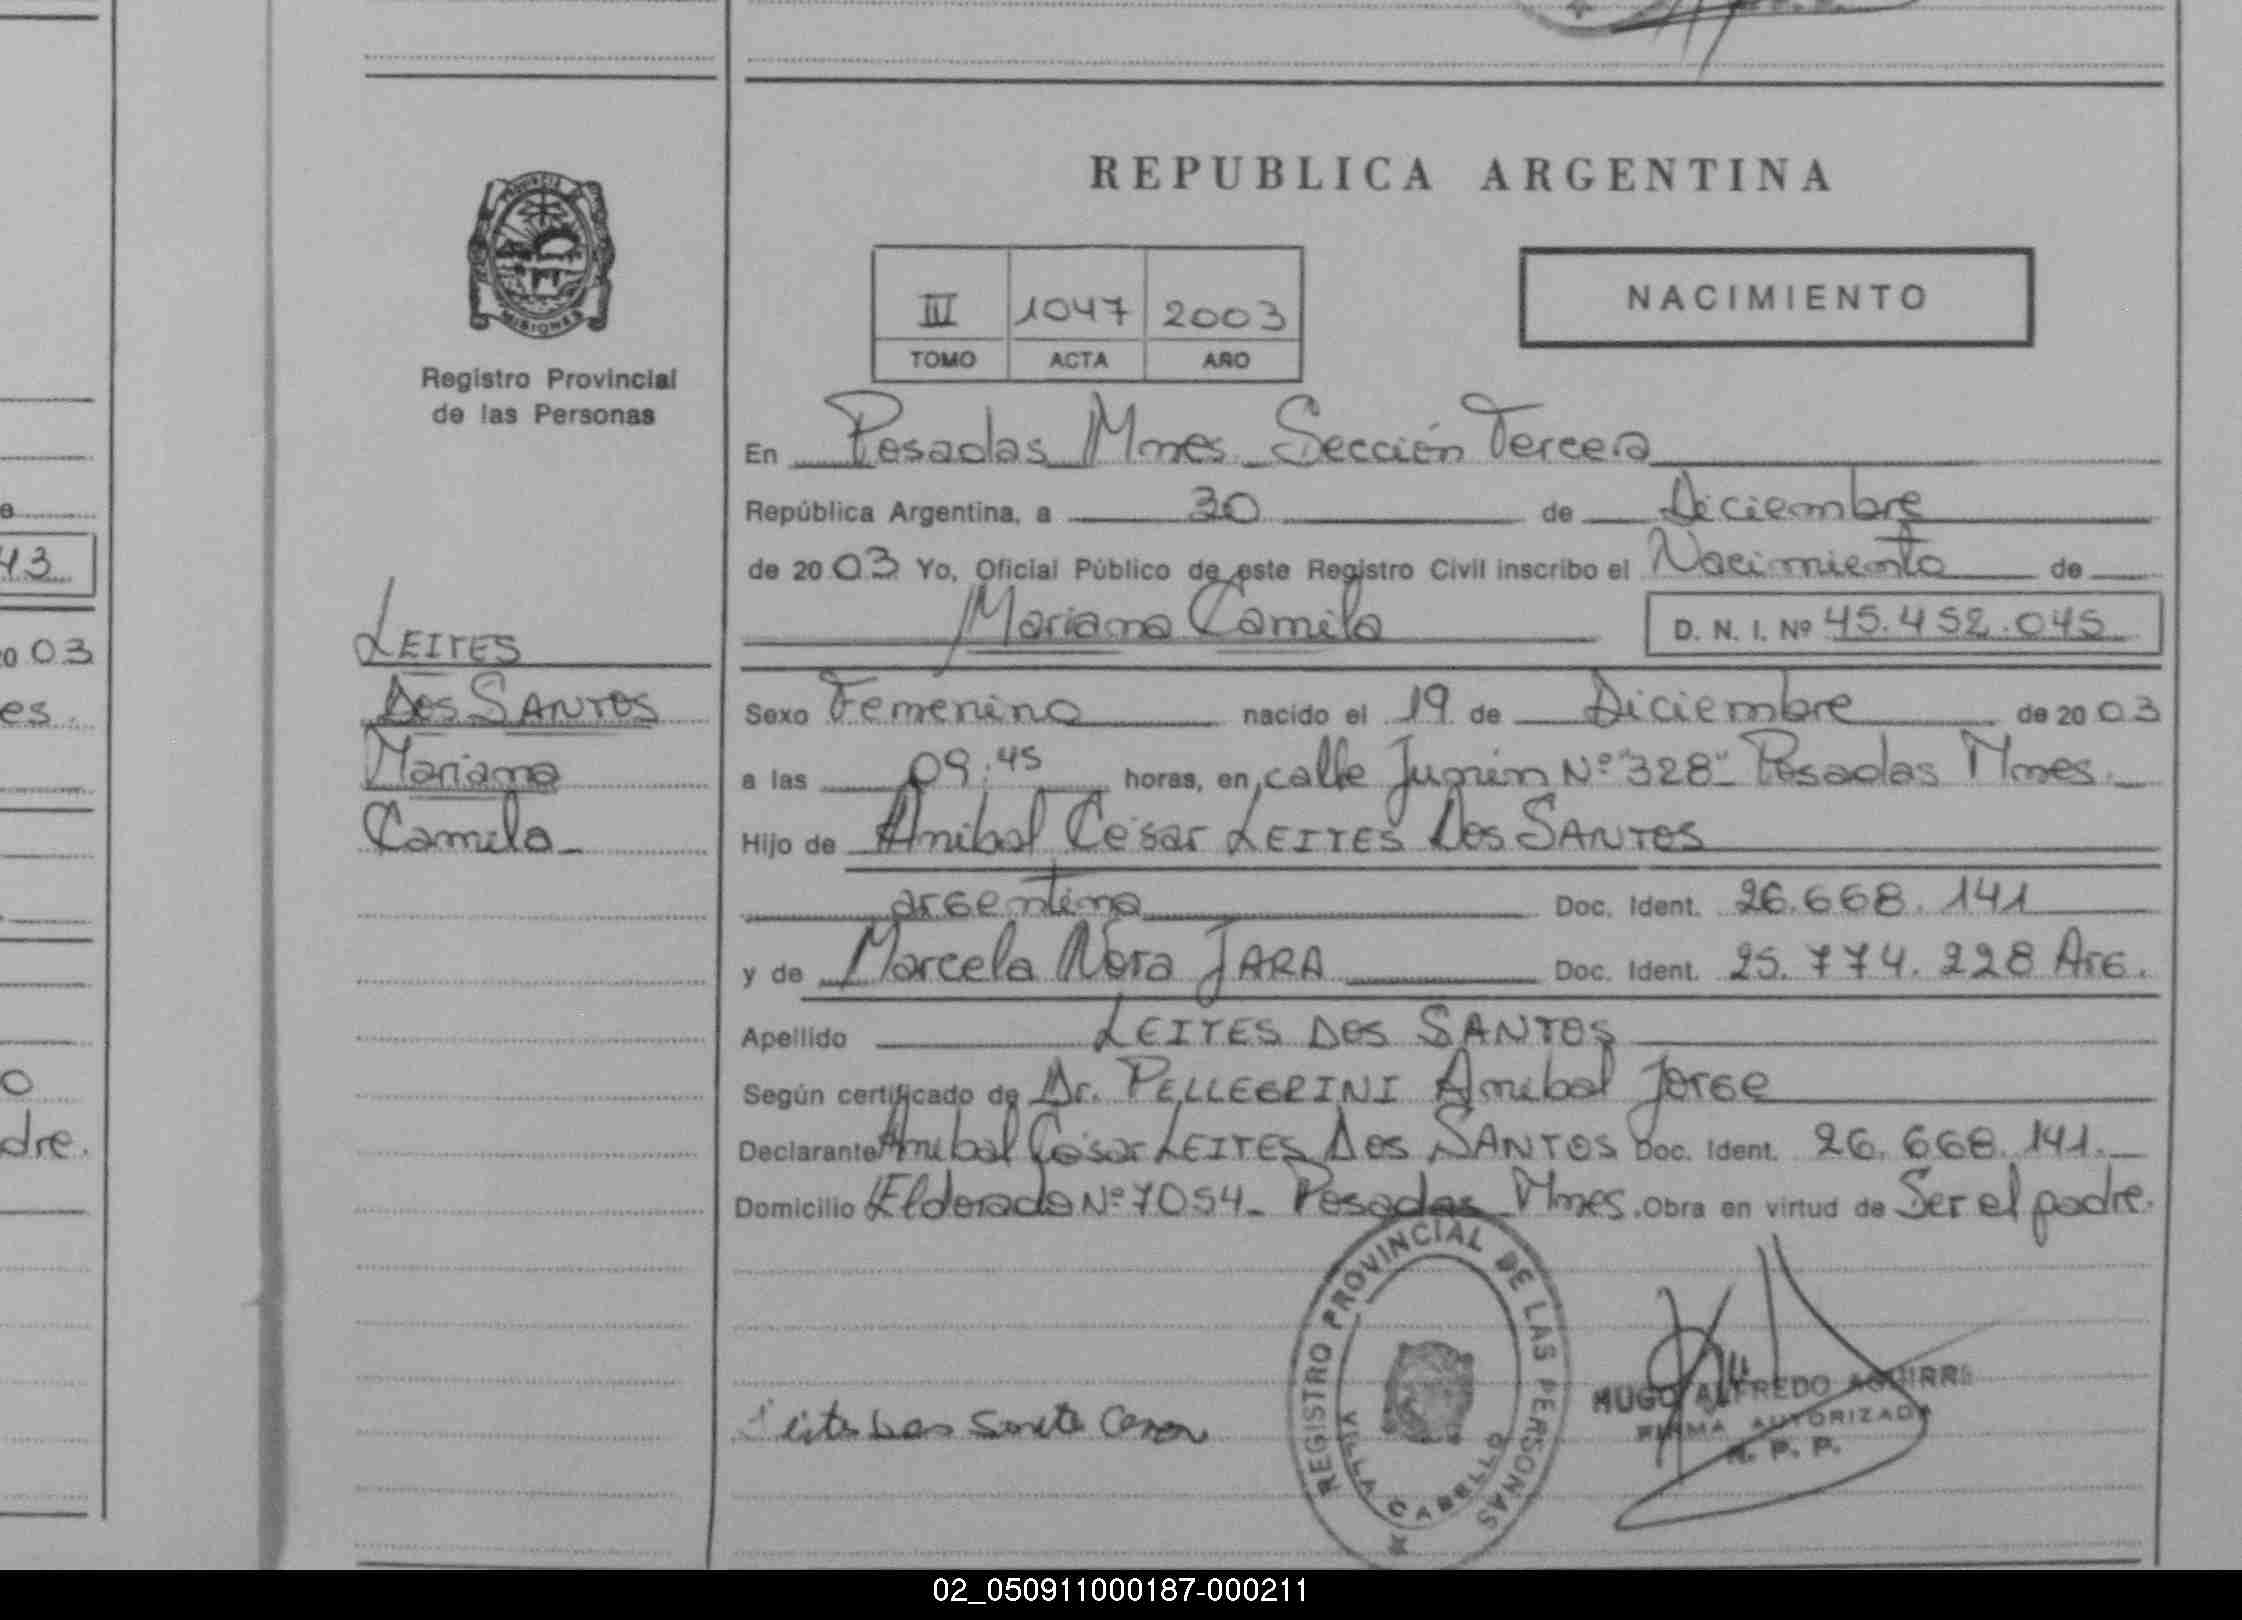 REPUBLICA ARGENTINA
PROVINCIA
MISIONES
Registro Provincial
de las Personas
III 1047 2003
TOMO ACTA AÑO
NACIMIENTO
En Posadas Mnes Sección Tercera
República Argentina, a 30 de Diciembre
de 2003 Yo, Oficial Público de este Registro Civil inscribo el Nacimiento de
Mariana Camila D. N. I. Nº 45.452.045
LEITES
DOS SANTOS
Mariana
Camila
Sexo Femenino nacido el 19 de Diciembre de 2003
a las 09:45 horas, en calle Junin Nº "328" Posadas Mnes.
Hijo de Anibal César LEITES DOS SANTOS
argentina Doc. Ident. 26.668.141
y de Marcela Nora JARA Doc. Ident. 25.774.228 Arg.
Apellido LEITES DOS SANTOS
Según certificado de Dr. PELLEGRINI Anibal Jorge
Declarante Anibal César LEITES DOS SANTOS Doc. Ident. 26.668.141.
Domicilio Eldorado Nº 7054 - Posadas Mnes. Obra en virtud de Ser el padre.
REGISTRO PROVINCIAL DE LAS PERSONAS
VILLA CABELLO
HUGO ALFREDO AGUIRRE
FIRMA AUTORIZADA
R. P. P.
43
20 03
es.
dre.
02_050911000187-000211